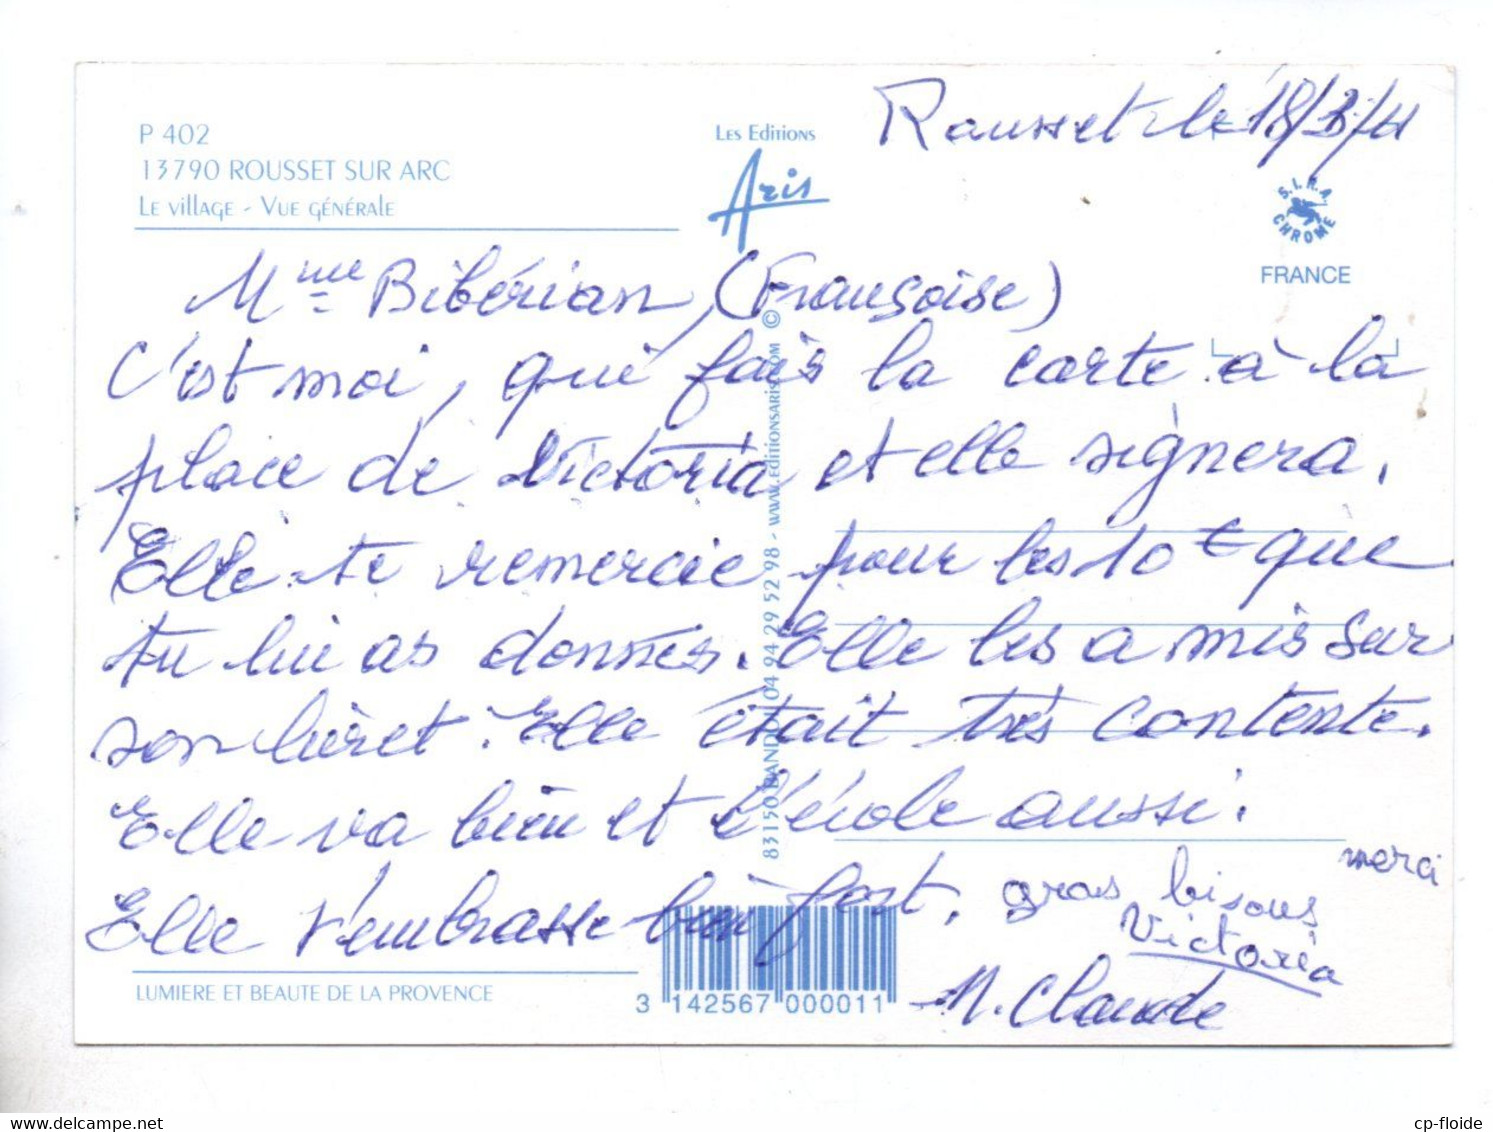 Rousset le 18/3/11
P 402
13790 ROUSSET SUR ARC
LE VILLAGE - VUE GÉNÉRALE
LES EDITIONS
Aris
S.I.R.A. CHROME
FRANCE
Mme Bibérian, (Françoise)
C'est moi, qui fais la carte à la
place de Victoria et elle signera.
Elle te remercie pour les 10 € que
tu lui as donnés. Elle les a mis sur
son livret. Elle était très contente.
Elle va bien et l'école aussi.
Elle t'embrasse bien fort, gros bisous
merci
Victoria
M. Claude
83150 BANDOL 04 94 29 52 98 - WWW.EDITIONSARIS.COM ©
LUMIERE ET BEAUTE DE LA PROVENCE
3 142567 000011
cp-floide